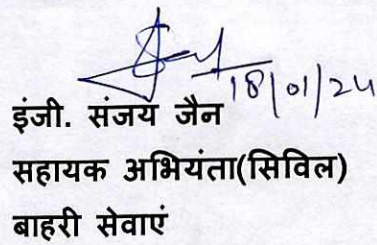 18/01/24
इंजी. संजय जैन
सहायक अभियंता(सिविल)
बाहरी सेवाएं